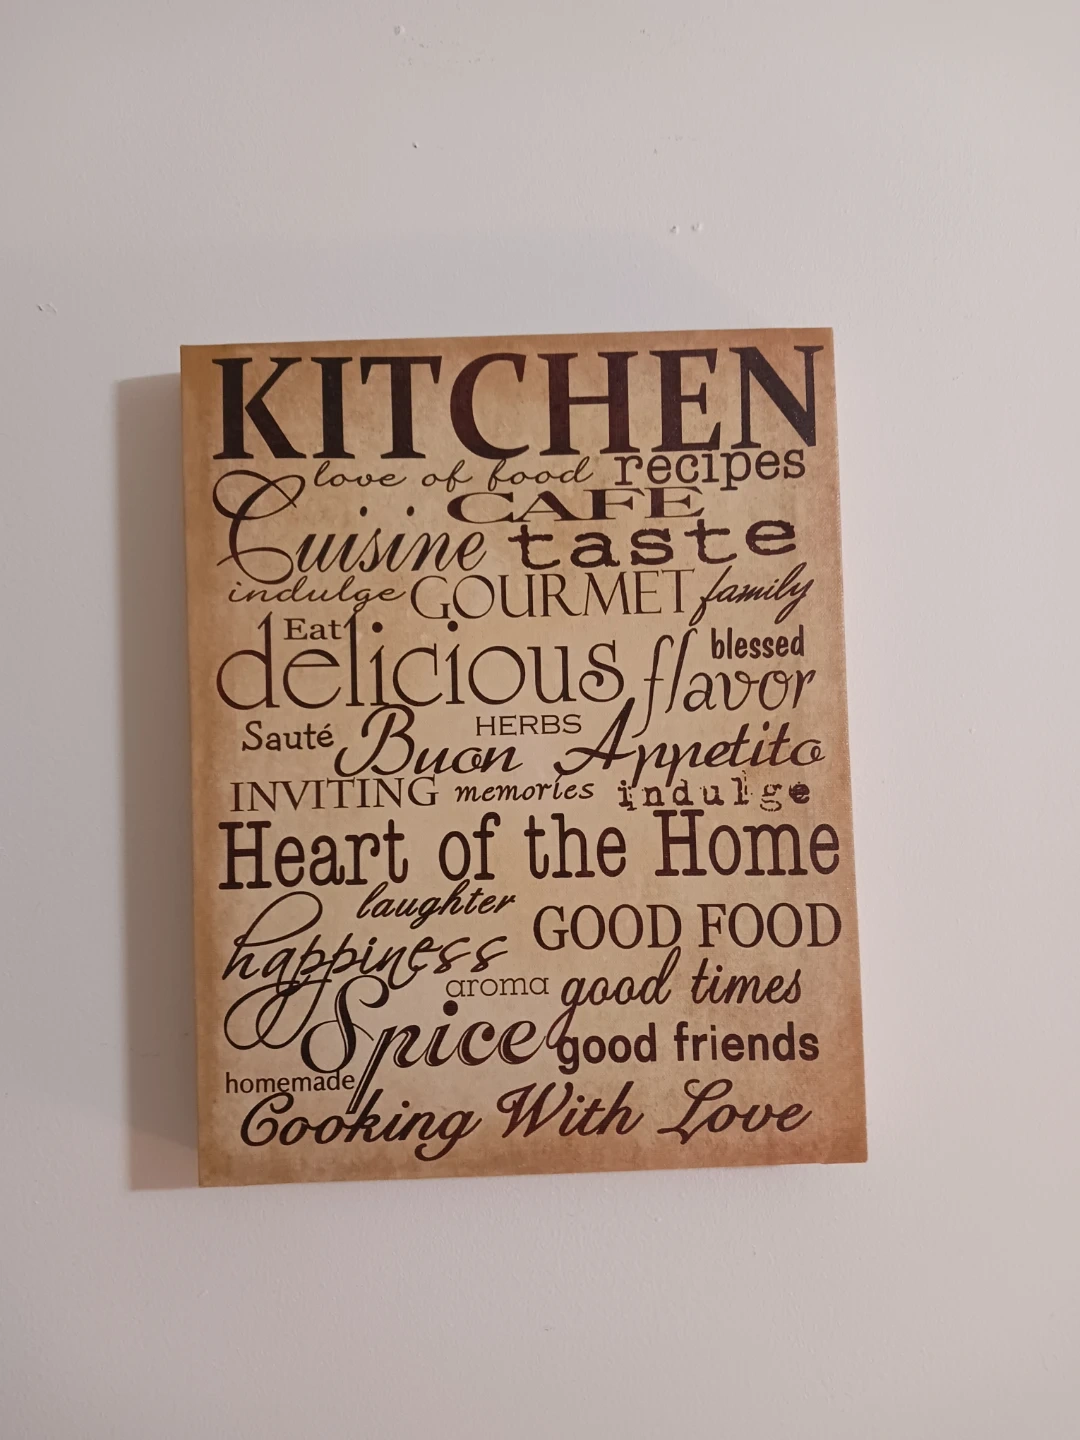 KITCHEN
love of food recipes
CAFE
Cuisine taste
indulge GOURMET family
Eat blessed
delicious flavor
Sauté HERBS
Buon Appetito
INVITING memories indulge
Heart of the Home
laughter
happiness GOOD FOOD
aroma good times
Spice good friends
homemade
Cooking With Love